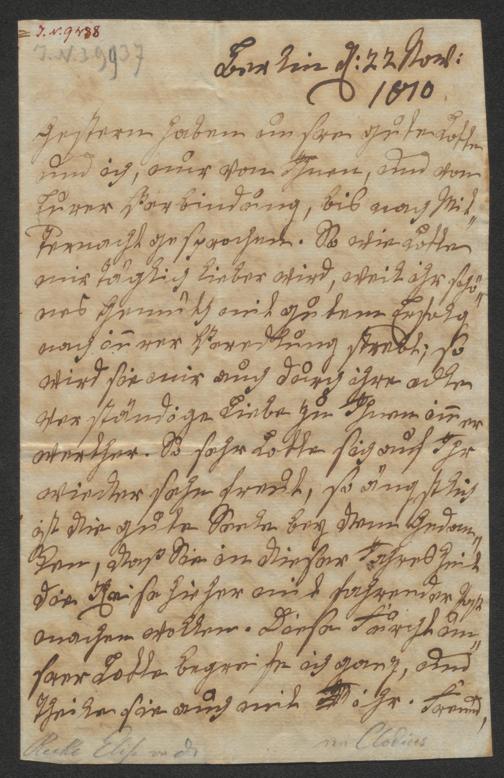 I. N. 9438
I.N.39937
Berlin d: 22 Nov:
1810
Gestern haben unsre gute Lotte
und ich, nur von Ihnen, und von
Eurer Verbindung, bis nach Mit=
ternacht gesprochen. So wie Lotte
mir täglich lieber wird, weil ihr schö=
nes Gemüth mit gutem Erfolg
nach inn̄rer Veredlung strebt; so
wird sie mir auch durch ihre edle
verständige Liebe zu Ihnen im̄er
werther. So sehr Lotte sich auf Ihr
wieder sehn freut, so ängstlich
ist die gute Seele bey dem Gedan=
ken, daß Sie in dieser Jahreszeit
die Reise hieher mit fahrender Post
machen wollen. Diese Furcht un=
srer Lotte begreife ich ganz, und
theile sie auch mit ihr. Freund,
Recke Elisa v. d.
an Clodius